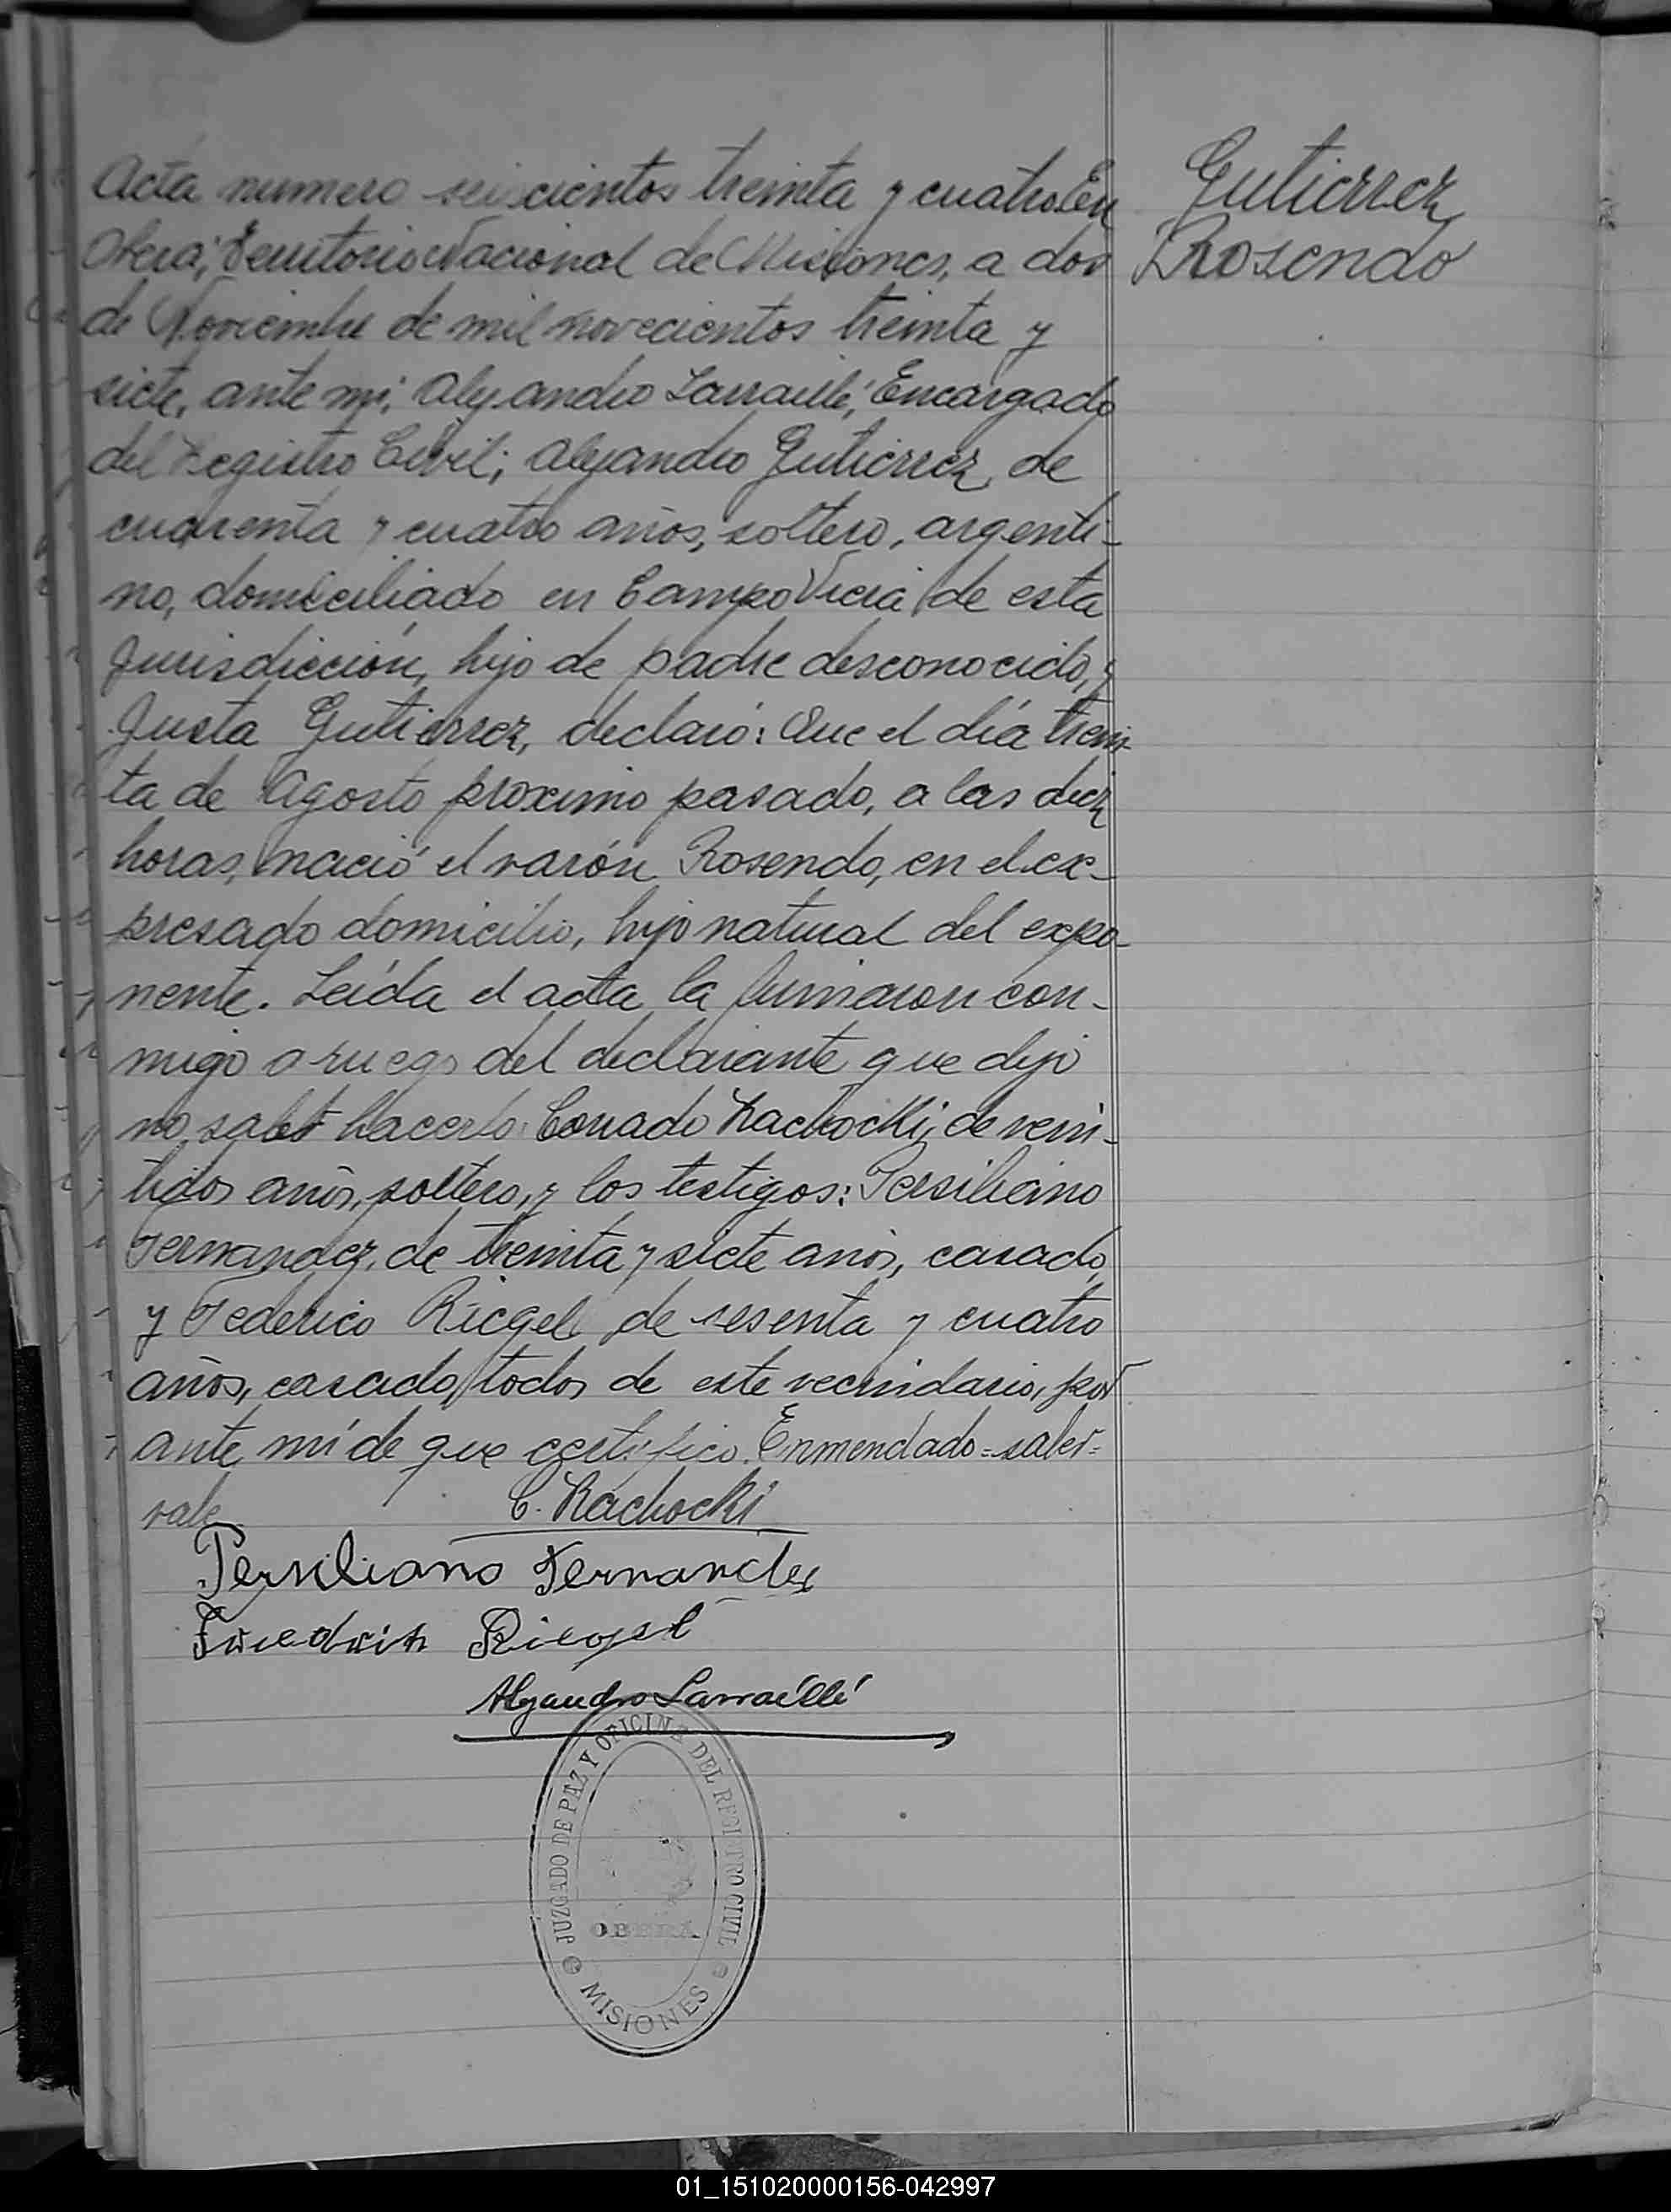 Acta numero seiscientos treinta y cuatro. En
Gutierrez
Oberá, Territorio Nacional de Misiones, a dos
Rosendo
de Noviembre de mil novecientos treinta y
siete, ante mí, Alejandro Larraillé, Encargado
del Registro Civil; Alejandro Gutierrez, de
cuarenta y cuatro años, soltero, argenti-
no, domiciliado en Campo Viera de esta
Jurisdicción, hijo de padre desconocido, y
Justa Gutierrez, declaró: Que el día trein-
ta de Agosto proximo pasado, a las diez
horas, nació el varón Rosendo, en el ex-
presado domicilio, hijo natural del expo-
nente. Leída el acta la firmaron con-
migo a ruego del declarante que dijo
no saber hacerlo: Conrado Rachocki, de vein-
tidos años, soltero, y los testigos: Persiliano
Fernandez, de treinta y siete años, casado,
y Federico Riegel de sesenta y cuatro
años, casado, todos de este vecindario, por
ante mí de que certifico. Enmendado=saber=
vale
C. Rachocki
Persiliano Fernandez
Friedrich Riegel
Alejandro Larraillé
JUZGADO DE PAZ Y OFICINA DEL REGISTRO CIVIL
OBERÁ
MISIONES
01_151020000156-042997